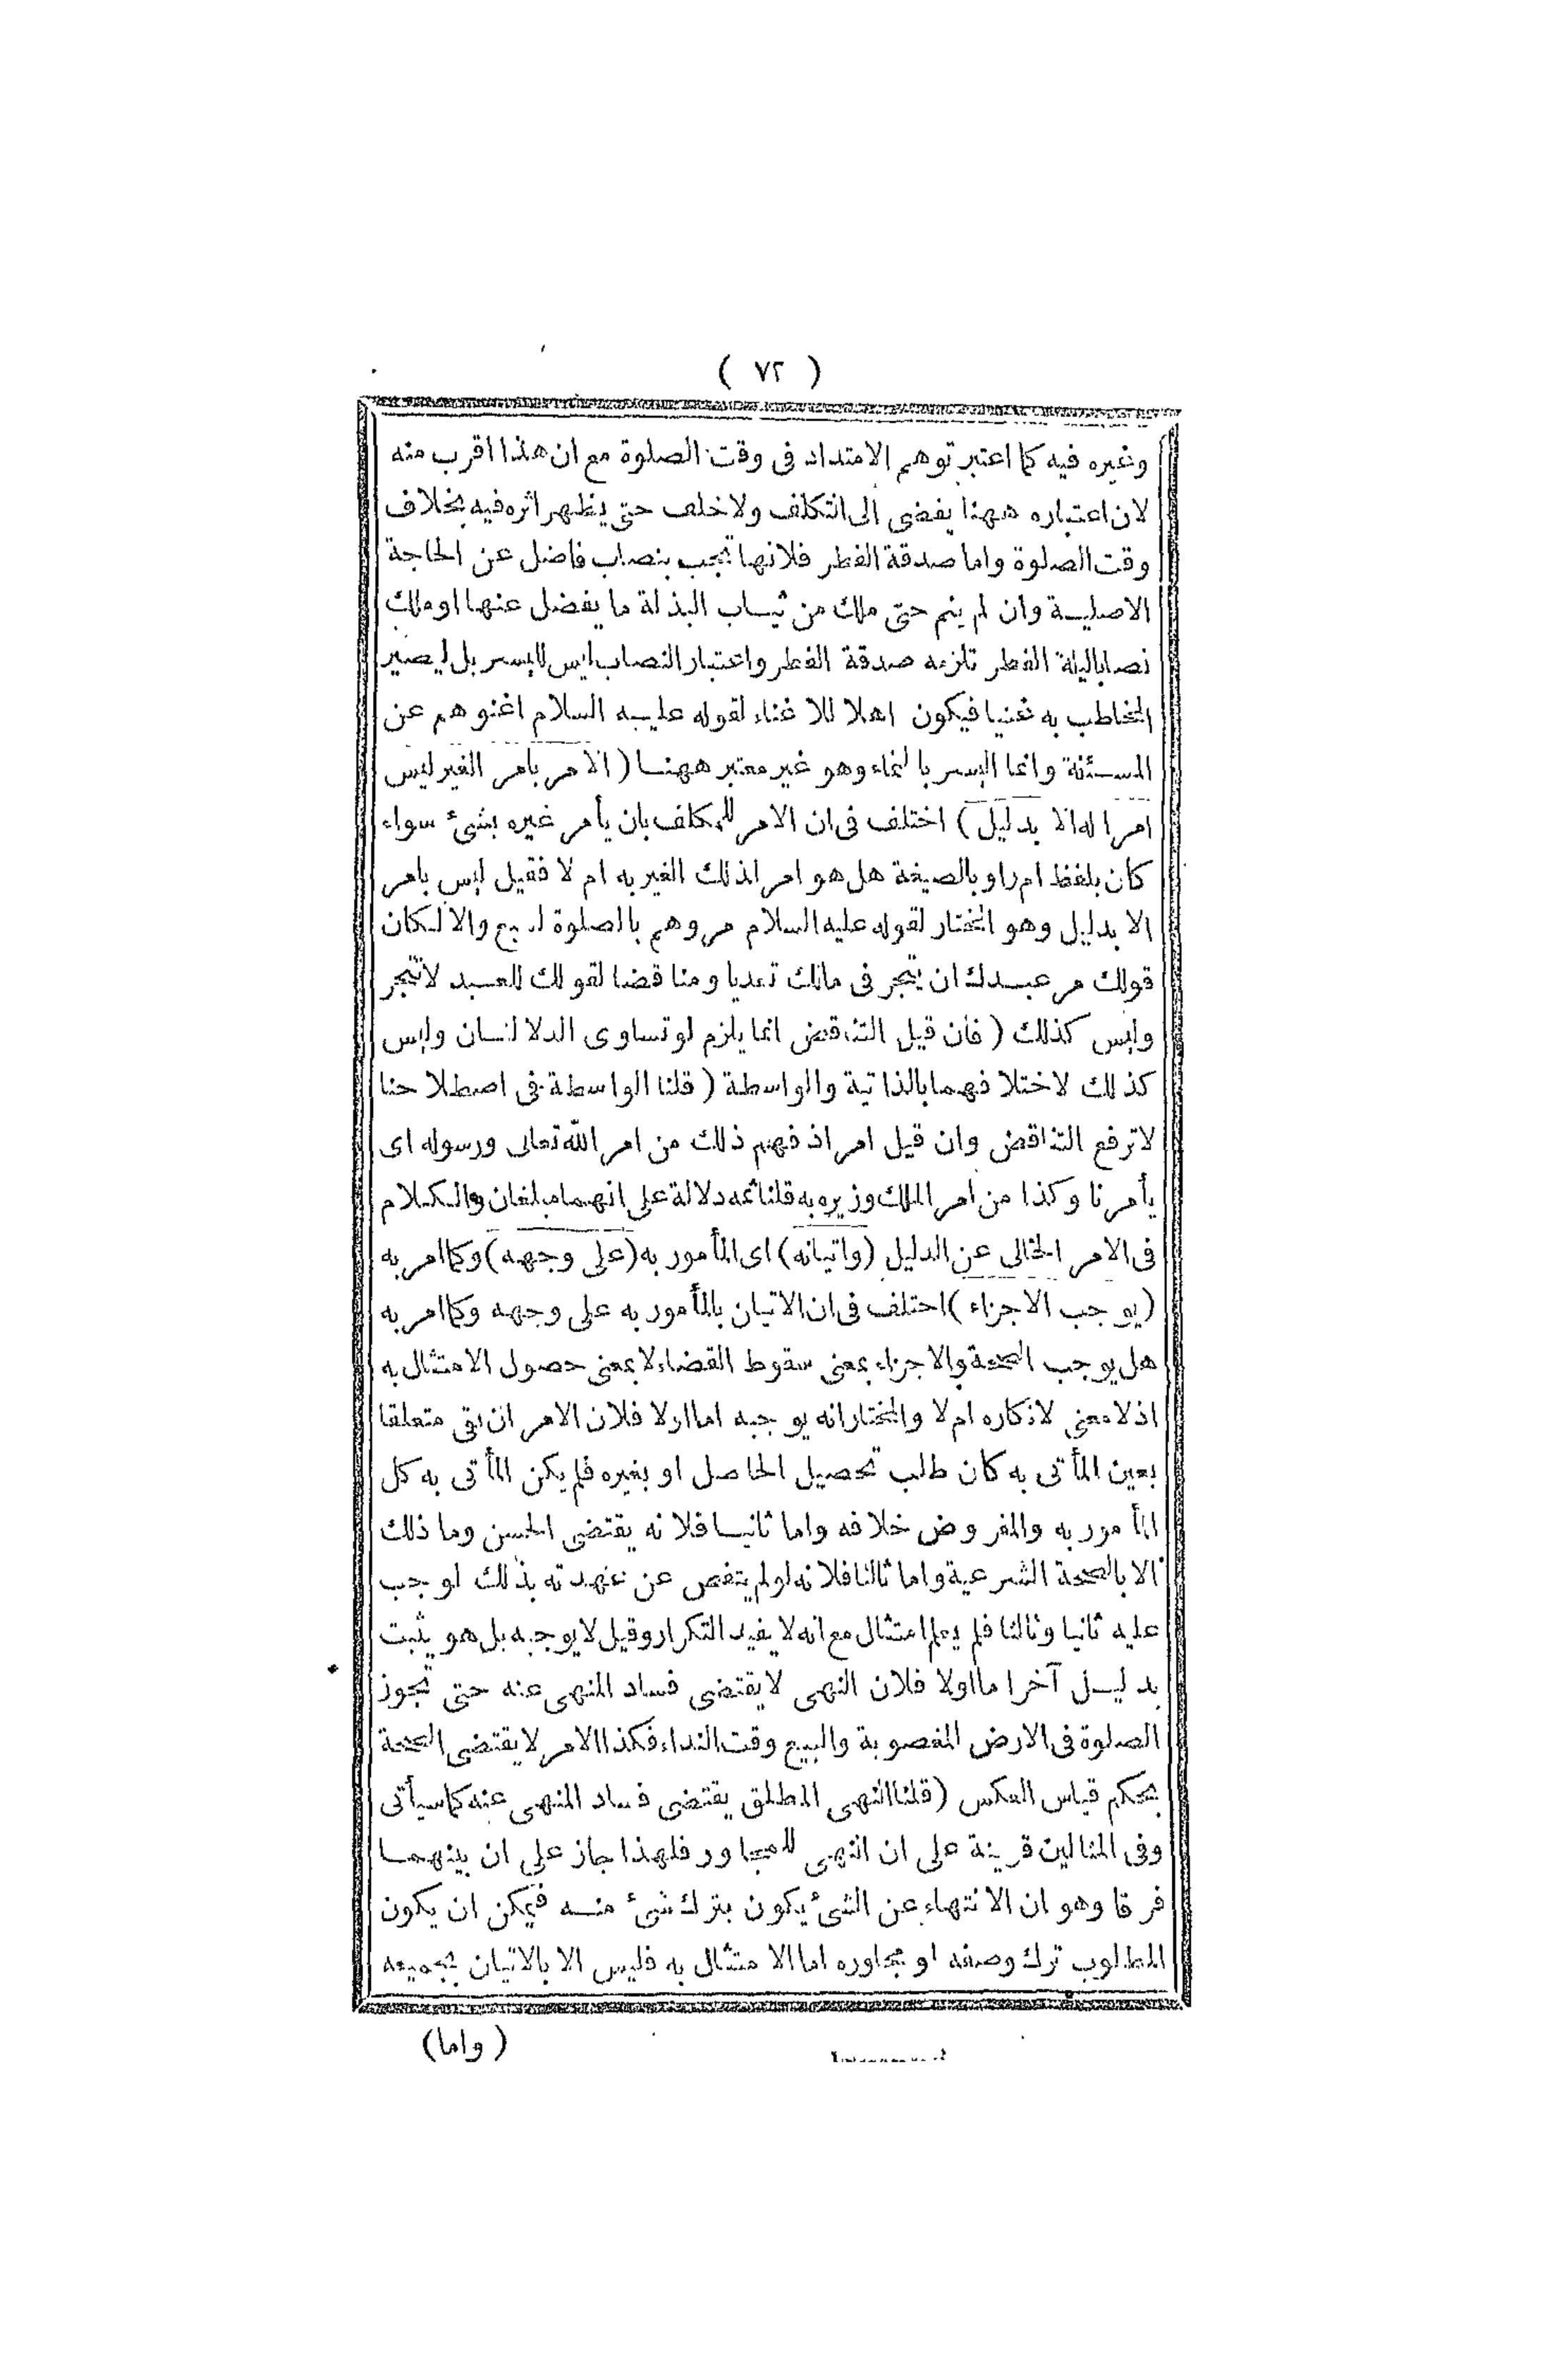 ( ٧٢ )
وغيره فيه كما اعتبر توهم الامتداد فى وقت الصلوة مع ان هذا اقرب منه
لان اعتباره ههنا يفضى الى التكلف ولا خلف حتى يظهر اثره فيه بخلاف
وقت الصلوة واما صدقة الفطر فلانها تجب بنصاب فاضل عن الحاجة
الاصلية وان لم ينم حتى ملك من ثياب البذلة ما يفضل عنها او ملك
نصابا ليلة الفطر تلزمه صدقة الفطر واعتبار النصاب ليس لليسر بل ليصير
المخاطب به غنيا فيكون اهلا للاغناء لقوله عليه السلام اغنوهم عن
المسئلة وانما اليسر بالنماء وهو غير معتبر ههنا ( الامر بامر الغير ليس
امرا له الا بدليل ) اختلف فى ان الامر للمكلف بان يأمر غيره بشئ سواء
كان بلفظ ام ر او بالصيغة هل هو امر لذلك الغير به ام لا فقيل ليس بامر
الا بدليل وهو المختار لقوله عليه السلام مروهم بالصلوة لسبع والا لكان
قولك مر عبدك ان يتجر فى مالك تعديا ومناقضا لقولك للعبد لا تتجر
وليس كذلك ( فان قيل التناقض انما يلزم لو تساوى الدلالتان وليس
كذلك لاختلافهما بالذاتية والواسطة ( قلنا الواسطة فى اصطلاحنا
لا ترفع التناقض وان قيل امر اذ فهم ذلك من امر الله تعالى ورسوله اى
يأمرنا وكذا من امر الملك وزيره به قلنا ثمه دلالة على انهما مبلغان والكلام
فى الامر الخالى عن الدليل ( واتيانه ) اى المأمور به ( على وجهه ) وكما امر به
( يوجب الاجزاء ) اختلف فى ان الاتيان بالمأمور به على وجهه وكما امر به
هل يوجب الصحة والاجزاء بمعنى سقوط القضاء لا بمعنى حصول الامتثال به
اذ لا معنى لانكاره ام لا والمختار انه يوجبه اما اولا فلان الامر ان بقى متعلقا
بعين المأتى به كان طلب تحصيل الحاصل او بغيره فلم يكن المأتى به كل
المأمور به والمفروض خلافه واما ثانيا فلانه يقتضى الحسن وما ذلك
الا بالصحة الشرعية واما ثالثا فلانه لو لم يتفص عن عهدته بذلك لوجب
عليه ثانيا وثالثا فلم يعلم امتثال مع انه لا يفيد التكرار وقيل لا يوجبه بل هو يثبت
بدليل آخر اما اولا فلان النهى لا يقتضى فساد المنهى عنه حتى تجوز
الصلوة فى الارض المغصوبة والبيع وقت النداء فكذا الامر لا يقتضى الصحة
بحكم قياس العكس ( قلنا النهى المطلق يقتضى فساد المنهى عنه كما سيأتى
وفى المثالين قرينة على ان النهى للمجاور فلهذا جاز على ان بينهما
فرقا وهو ان الانتهاء عن الشئ يكون بترك شئ منه فيمكن ان يكون
المطلوب ترك وصفه او مجاوره اما الامتثال به فليس الا بالاتيان بجميعه
( واما )